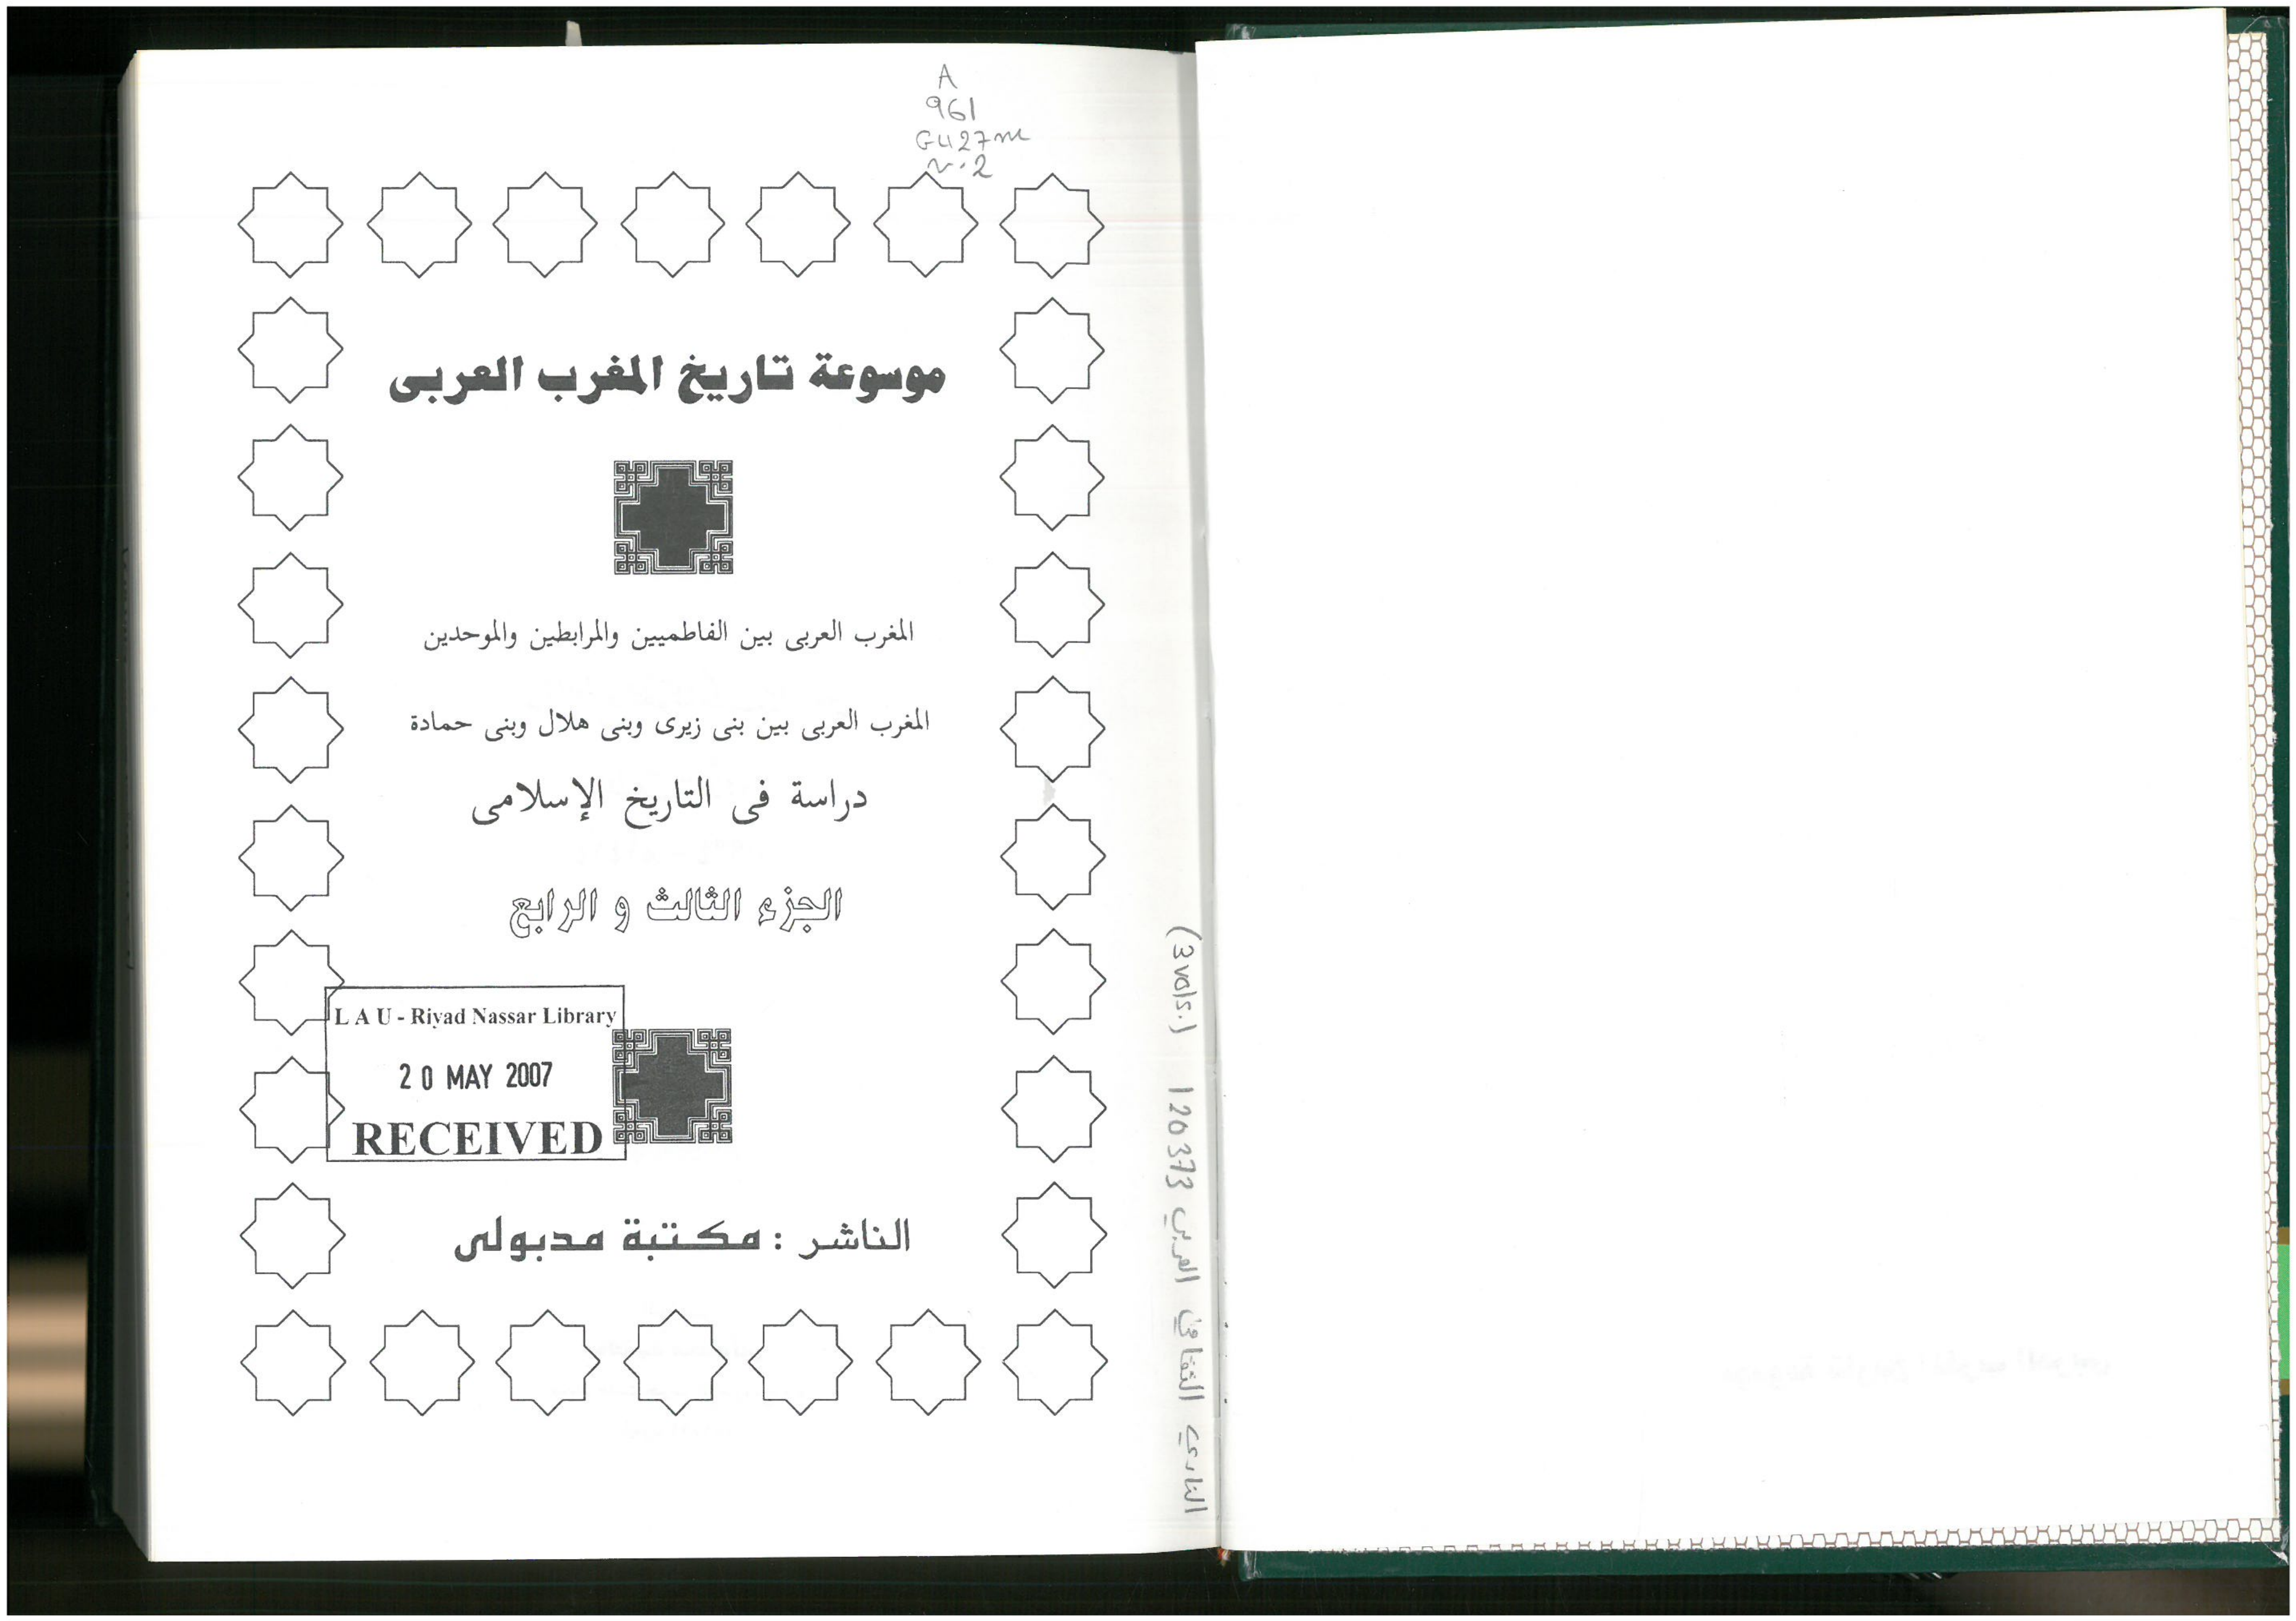 A
961
G427m
v.2
موسوعة تاريخ المغرب العربى
المغرب العربى بين الفاطميين والمرابطين والموحدين
المغرب العربى بين بنى زيرى وبنى هلال وبنى حمادة
دراسة فى التاريخ الإسلامى
الجزء الثالث و الرابع
L A U - Riyad Nassar Library
20 MAY 2007
RECEIVED
الناشر : مكتبة مدبولى
(3vols.) 120373 العربي الثقافي